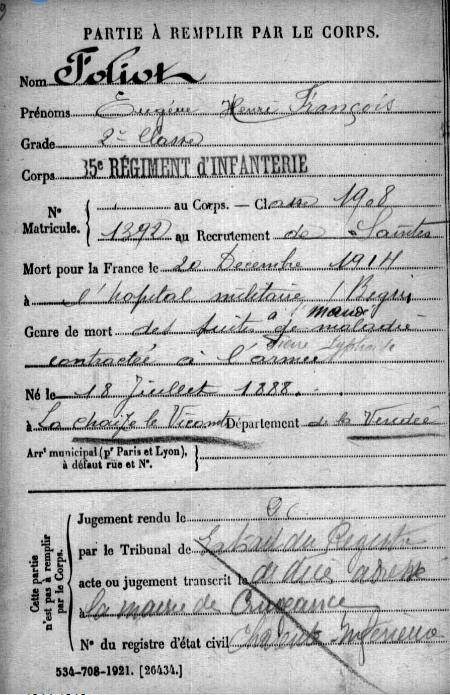 PARTIE À REMPLIR PAR LE CORPS.
Nom Foliot
Prénoms Eugène Henri François
Grade 2e Classe
Corps 35e RÉGIMENT d'INFANTERIE
N° Matricule.
au Corps. — Classe 1908
1392 au Recrutement de Saintes
Mort pour la France le 20 Decembre 1914
à l'hopital militaire Begin
à
Genre de mort des suites de maladie
contractée à l'armée
Né le 18 Juillet 1888
à La chaize le Vicomte Département de la Vendée
Arrt municipal (pr Paris et Lyon), à défaut rue et N°.
Cette partie n'est pas à remplir par le Corps.
Jugement rendu le
par le Tribunal de Extrait du Registre
acte ou jugement transcrit le de décès adressé
à la mairie de
N° du registre d'état civil Charente Inférieure
534-708-1921. [26434.]